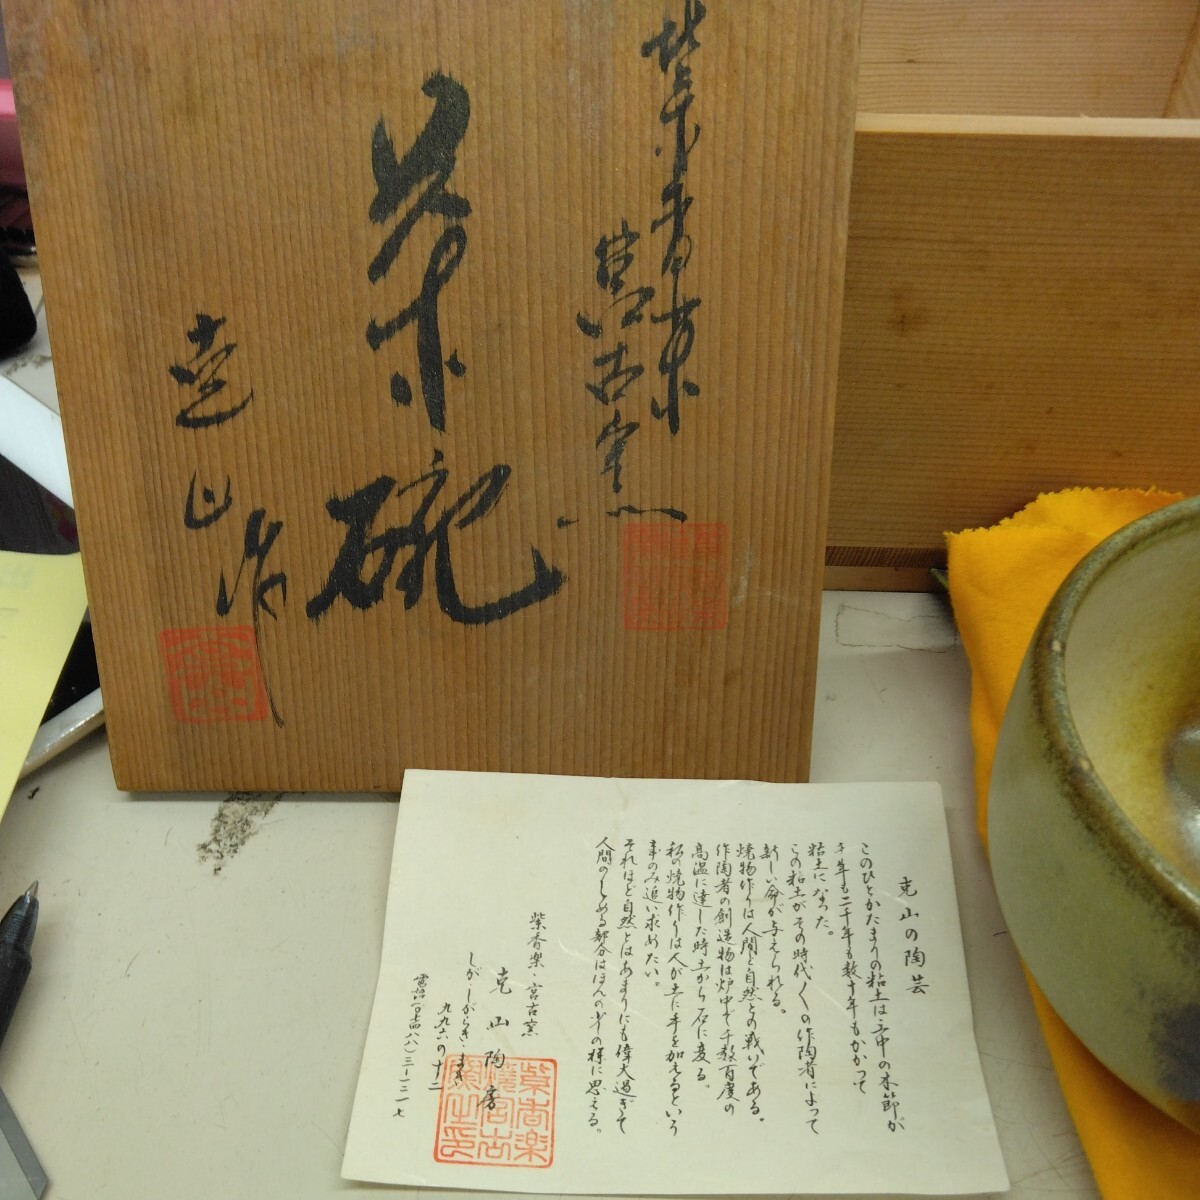 紫香楽
宮古窯
茶碗
克山作
克山の陶芸
このひとかたまりの粘土は山中の木節が
千年も二千年も数十年もかかって
粘土になった。
らの粘土がその時代〱の作陶者によって
新しい命が与えられる。
焼物作りは人間と自然との戦いである。
作陶者の創造物は炉中で千数百度の
高温に達した時土から石に変る。
私の焼物作りは人が土に手を加えるという
事のみ追い求めたい。
それほど自然とはあまりにも偉大過ぎて
人間のしめる部分はほんの少の様に思える。
紫香楽・宮古窯
克山陶房
しが・しがらき・まき
九九六の十二
電話(〇七四八八)三-一三一七
紫香楽
宮古